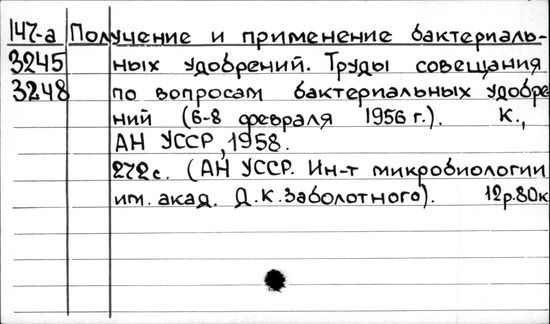 147-а Получение и применение бактериаль-
3245 ных удобрений. Труды совещания
3248 по вопросам бактериальных удобре
ний (6-8 февраля 1956 г.). К.,
АН УССР, 1958.
272с. (АН УССР. Ин-т микробиологии
им. акад. Д.К.Заболотного). 12р.80к